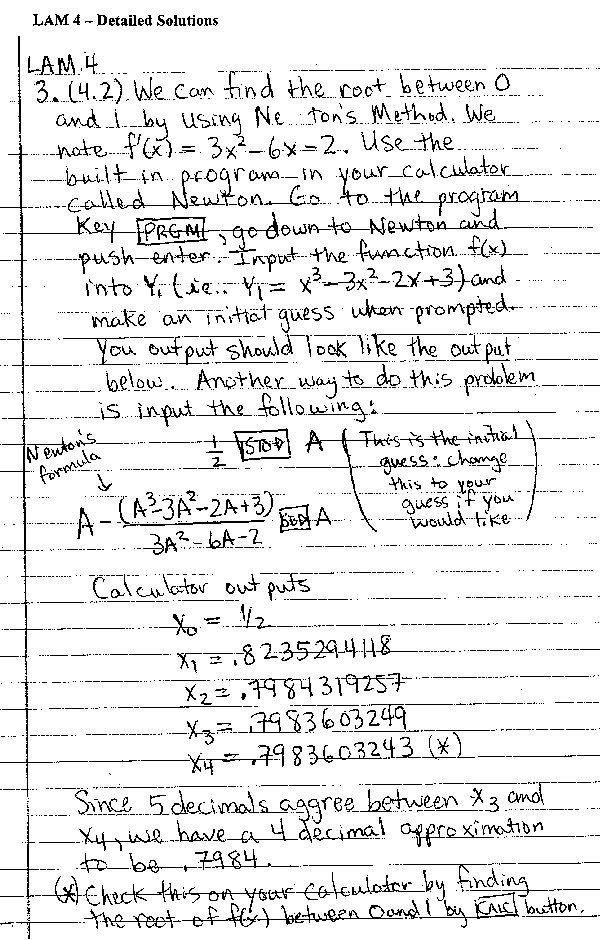 LAM 4 – Detailed Solutions
LAM 4
3. (4.2) We can find the root between 0
and 1 by using Ne ton's Method. We
note f'(x) = 3x²-6x=2. Use the
built in program in your calculator
called Newton. Go to the program
Key [PRGM], go down to Newton and
push enter. Input the function f(x)
into Y₁ (i.e.. Y₁ = x³-3x²-2x+3) and
make an initial guess when prompted.
You output should look like the output
below. Another way to do this problem
is input the following:
Newton's
formula
1/2 [STO▸] A (This is the initial
guess: change
this to your
guess if you
would like)
A - (A³-3A²-2A+3) / 3A²-6A-2 [STO▸] A
Calculator outputs
x₀ = 1/2
x₁ = .8235294118
x₂ = .7984319257
x₃ = .7983603249
x₄ = .7983603243 (*)
Since 5 decimals aggree between x₃ and
x₄, we have a 4 decimal approximation
to be .7984.
(*) Check this on your calculator by finding
the root of f(x) between 0 and 1 by [CALC] button.